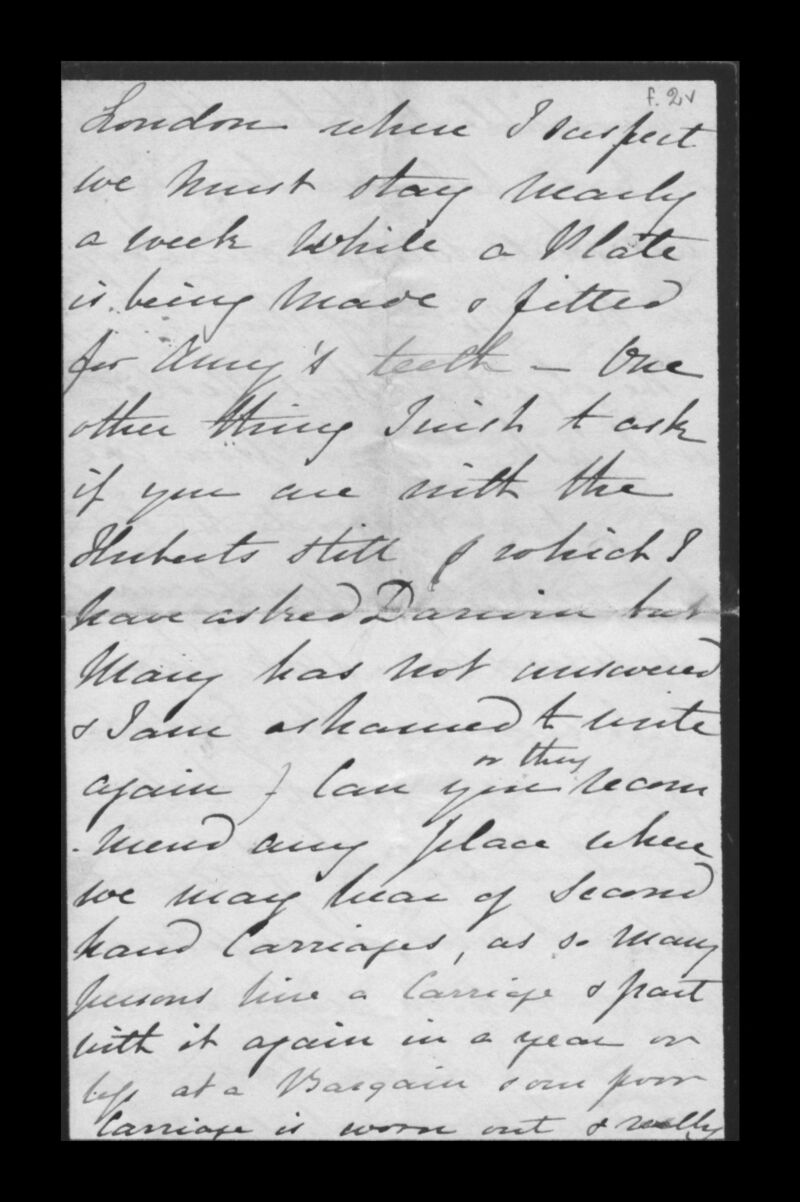 f. 2v
London where I suspect
we must stay nearly
a week while a Plate
is being made & fitted
for Amy's teeth – One
other thing I wish to ask
if you are with the
Huberts still ( which I
have asked Darwin but
Mary has not answered
& I am ashamed to write
again ) Can you or they recom
-mend any place where
we may hear of Second
hand Carriages, as so many
persons hire a Carriage & part
with it again in a year or
less at a Bargain & our poor
Carriage is worn out & really